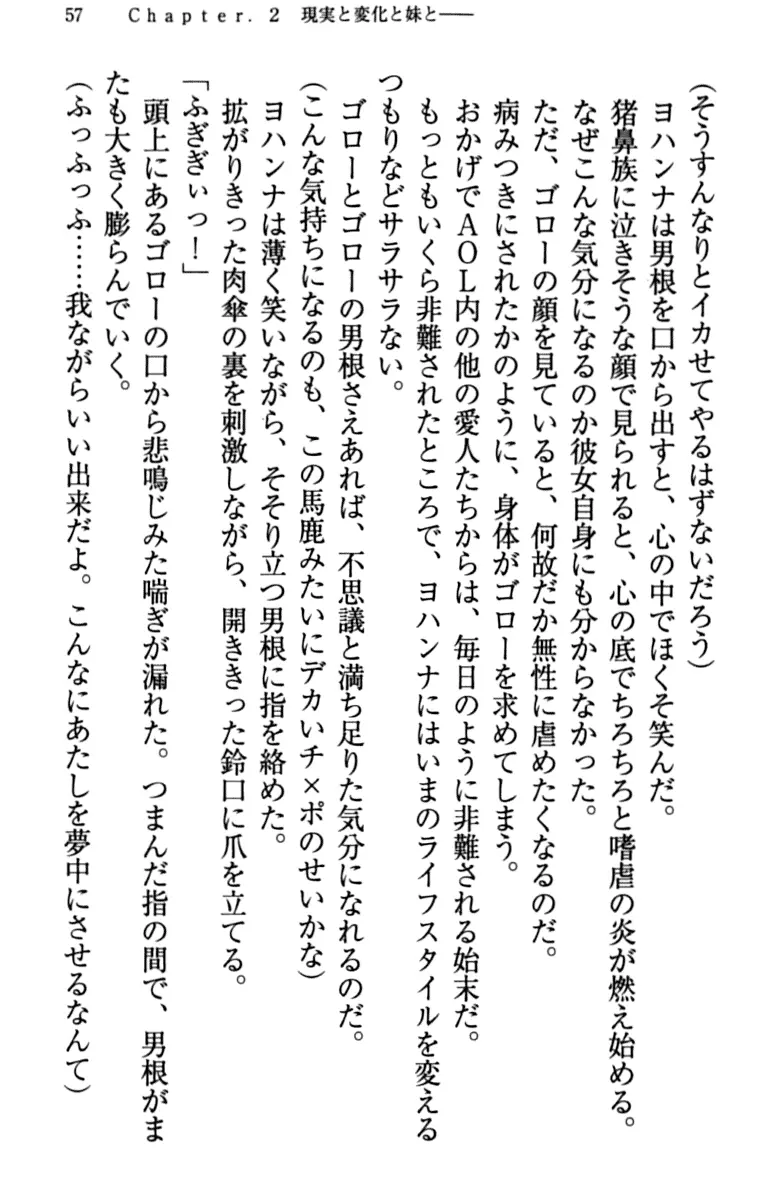 57　Chapter. 2　現実と変化と妹と――
（そうすんなりとイカせてやるはずないだろう）
ヨハンナは男根を口から出すと、心の中でほくそ笑んだ。
猪鼻族に泣きそうな顔で見られると、心の底でちろちろと嗜虐の炎が燃え始める。
なぜこんな気分になるのか彼女自身にも分からなかった。
ただ、ゴローの顔を見ていると、何故だか無性に虐めたくなるのだ。
病みつきにされたかのように、身体がゴローを求めてしまう。
おかげでＡＯＬ内の他の愛人たちからは、毎日のように非難される始末だ。
もっともいくら非難されたところで、ヨハンナにはいまのライフスタイルを変える
つもりなどサラサラない。
ゴローとゴローの男根さえあれば、不思議と満ち足りた気分になれるのだ。
（こんな気持ちになるのも、この馬鹿みたいにデカいチ×ポのせいかな）
ヨハンナは薄く笑いながら、そそり立つ男根に指を絡めた。
拡がりきった肉傘の裏を刺激しながら、開ききった鈴口に爪を立てる。
「ふぎぎぃっ！」
頭上にあるゴローの口から悲鳴じみた喘ぎが漏れた。つまんだ指の間で、男根がま
たも大きく膨らんでいく。
（ふっふっふ……我ながらいい出来だよ。こんなにあたしを夢中にさせるなんて）